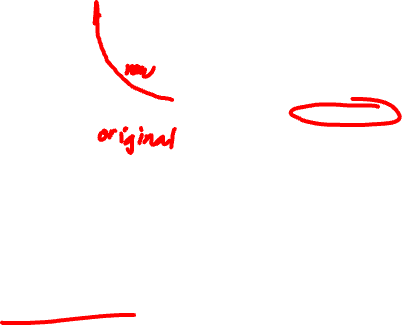 new
original